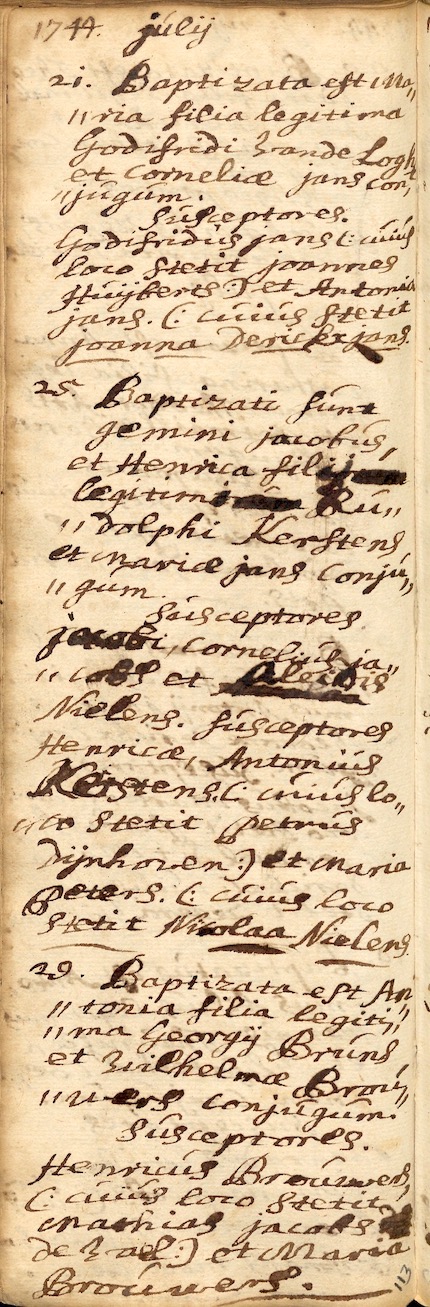 1744. júlij
21. Baptizata est Ma„
„ria filia legitima
Godifridi vande Logh
et Corneliæ jans con„
„júgúm.
Súsceptores.
Godifridús jans (: cúiús
loco stetit joannes
Húijberts :) et Antonia
jans. (: cúiús stetit
joanna Derickx jans.
25. Baptizati súnt
gemini jacobús,
et Henrica filij
legitimi Rú„
„dolphi Kerstens
et Mariæ jans conjú„
„gúm.
Súsceptores
jacobi, Corneliús ja„
„cobs et Aleidis
Nielens. súsceptores
Henricæ, Antoniús
Kerstens (: cúiús lo„
„co stetit petrús
Dijnhoven :) et Maria
peters. (: cúiús loco
stetit Nicolaa Nielens.
29. Baptizata est An„
„tonia filia legiti„
„ma Georgij Brúns,
et Wilhelmæ Broú„
„wers conjúgúm.
Súsceptores.
Henricús Broúwers,
(: cúiús loco stetit
Mathias jacobs
de Zael :) et Maria
Broúwers.
113